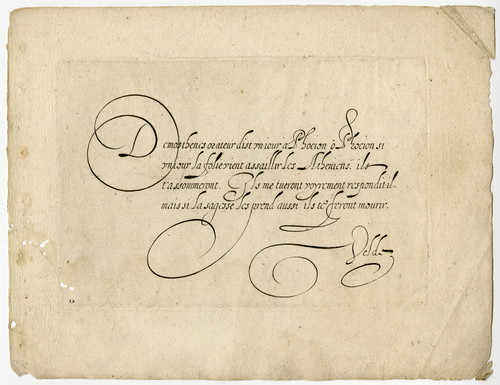 Demosthenes orateur dist vn iour à Phocion ò Phocion si
vn iour la folie vient assaillir les Atheniens, ils
t'assommeront. Ils me tueront voyrement respondit il.
mais si la sagesse les prend aussi ils te feront mourir.
Velde